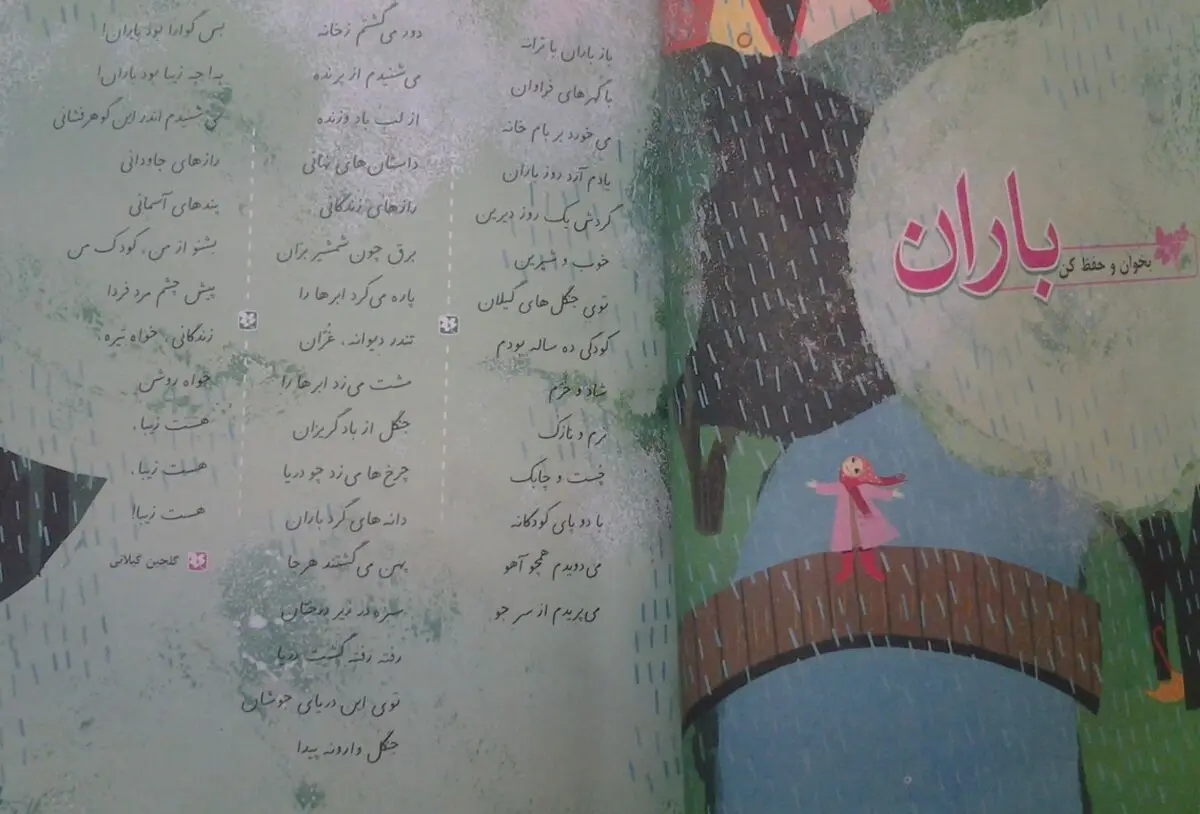 باران
بخوان و حفظ کن
باز باران با ترانه
با گهرهای فراوان
می خورد بر بام خانه
یادم آرد روز باران
گردش یک روز دیرین
خوب و شیرین
توی جنگل های گیلان
کودکی ده ساله بودم
شاد و خرّم
نرم و نازک
چست و چابک
با دو پای کودکانه
می دویدم همچو آهو
می پریدم از سر جو
دور می گشتم ز خانه
می شنیدم از پرنده
از لب باد وزنده
داستان های نهانی
رازهای زندگانی
برق چون شمشیر برّان
پاره می کرد ابرها را
تندر دیوانه، غُرّان
مشت می زد ابرها را
جنگل از باد گریزان
چرخ ها می زد چو دریا
دانه های گرد باران
پهن می گشتند هر جا
سبزه در زیر درختان
رفته رفته گشت دریا
توی این دریای جوشان
جنگل وارونه پیدا
بس گوارا بود باران!
به! چه زیبا بود باران!
می شنیدم اندر این گوهرفشانی
رازهای جاودانی
پندهای آسمانی
بشنو از من، کودک من
پیش چشم مرد فردا
زندگانی، خواه تیره،
خواه روشن
هست زیبا،
هست زیبا،
هست زیبا!
گلچین گیلانی